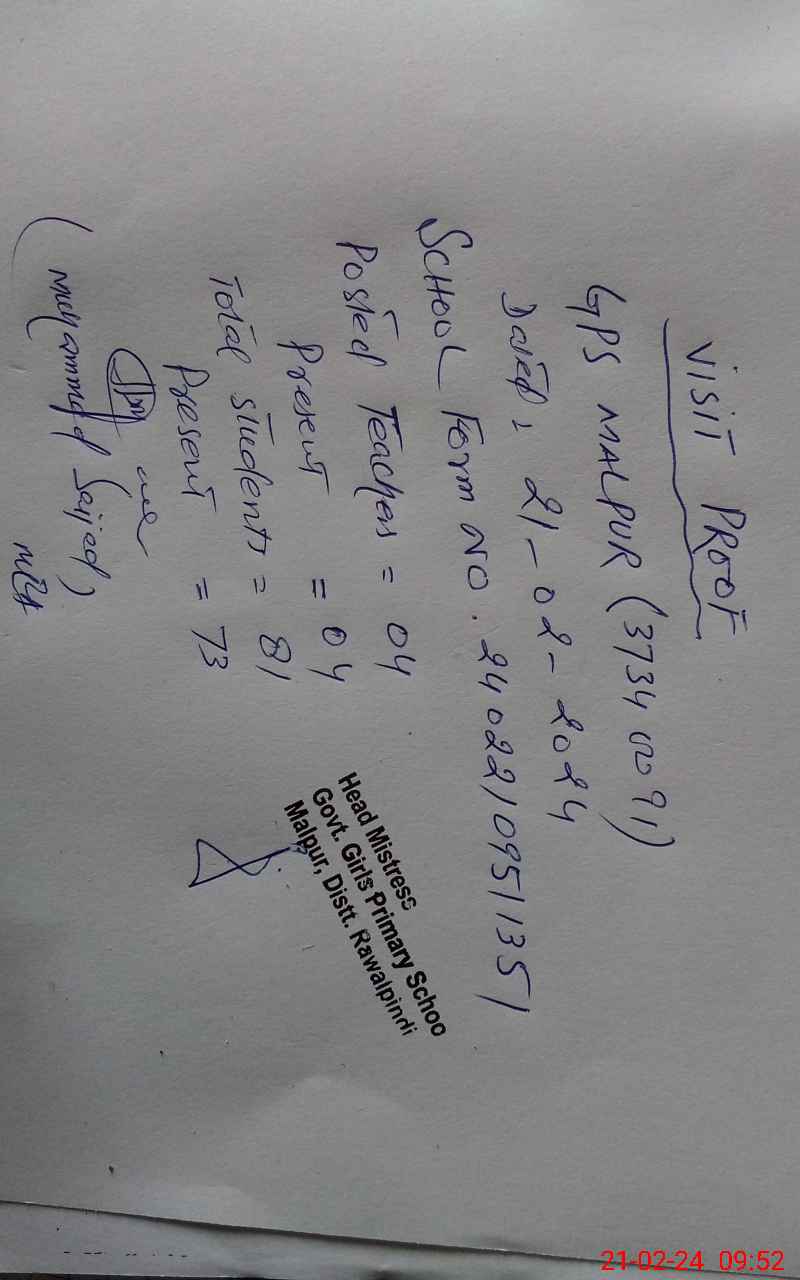 VISIT PROOF
GPS MALPUR (37340091)
Dated: 21-02-2024
SCHOOL Form NO. 24022109511351
Posted Teachers = 04
Present = 04
Total students = 81
Present = 73
(Muhammad Sajjad)
Head Mistress
Govt. Girls Primary Schoo
Malpur, Distt. Rawalpindi
21-02-24 09:52